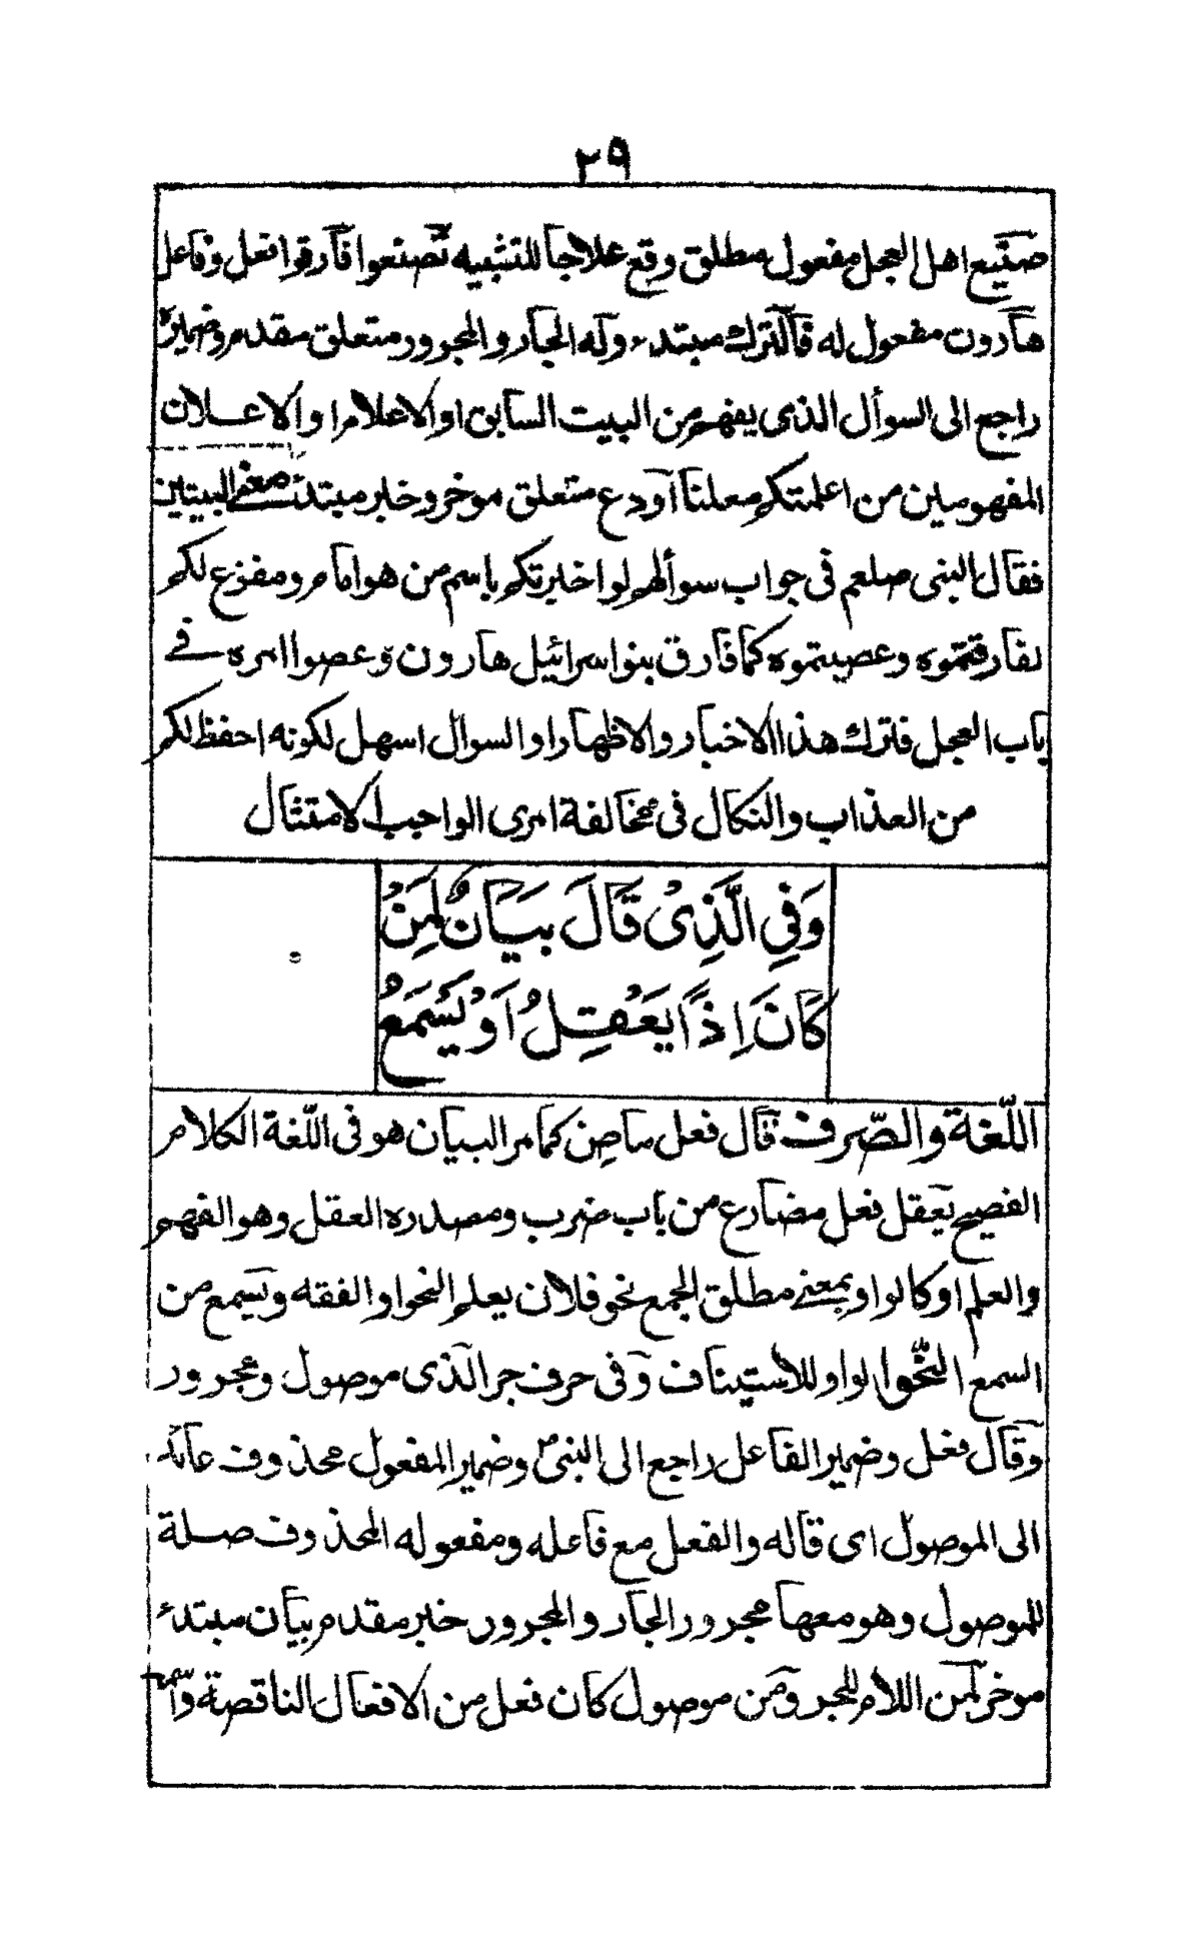 ٢٩
صنيع اهل العجل مفعول مطلق وقع علاجا للتشبيه تصنعوا فارقوا فعل وفاعل
هارون مفعول له فالترك مبتدء وله الجار والمجرور متعلق مقدم وضميره
راجع الى السوأل الذى يفهم من البيت السابق او الاعلام او الاعلان
المفهومين من اعلمتكم معلنا اودع متعلق موخر وخبر مبتدء معنى البيتين
فقال النبى صلعم فى جواب سوألهم لو اخبرتكم باسم من هو امام ومفزع لكم
لفارقتموه وعصيتموه كما فارق بنوا سرائيل هارون وعصوا امره فے
باب العجل فترك هذا الاخبار والاظهار او السوال اسهل لكونه احفظ لكم
من العذاب والنكال فى مخالفة امرى الواجب الامتثال
وَفِى الَّذِىْ قَالَ بَيَانٌ لِمَنْ
كَانَ اِذًا يَعْقِلُ اَوْ يَسْمَعُ
اللّغة والصّرف قال فعل ماض كما مر البيان هو فى اللّغة الكلام
الفصيح يعقل فعل مضارع من باب ضرب ومصدره العقل وهو الفهم
والعلم او كالواو بمعنى مطلق الجمع نحو فلان يعلم النحو او الفقه ويسمع من
السمع النّحو الواو للاستيناف وفى حرف جر الذى موصول ومجرور
وقال فعل وضمير الفاعل راجع الى النبىؐ وضمير المفعول محذوف عائد
الى الموصول اى قاله والفعل مع فاعله ومفعوله المحذوف صلة
للموصول وهو معها مجرور الجار والمجرور خبر مقدم بيان مبتدء
موخر لمن اللام للجر ومن موصول كان فعل من الافعال الناقصة واسمه